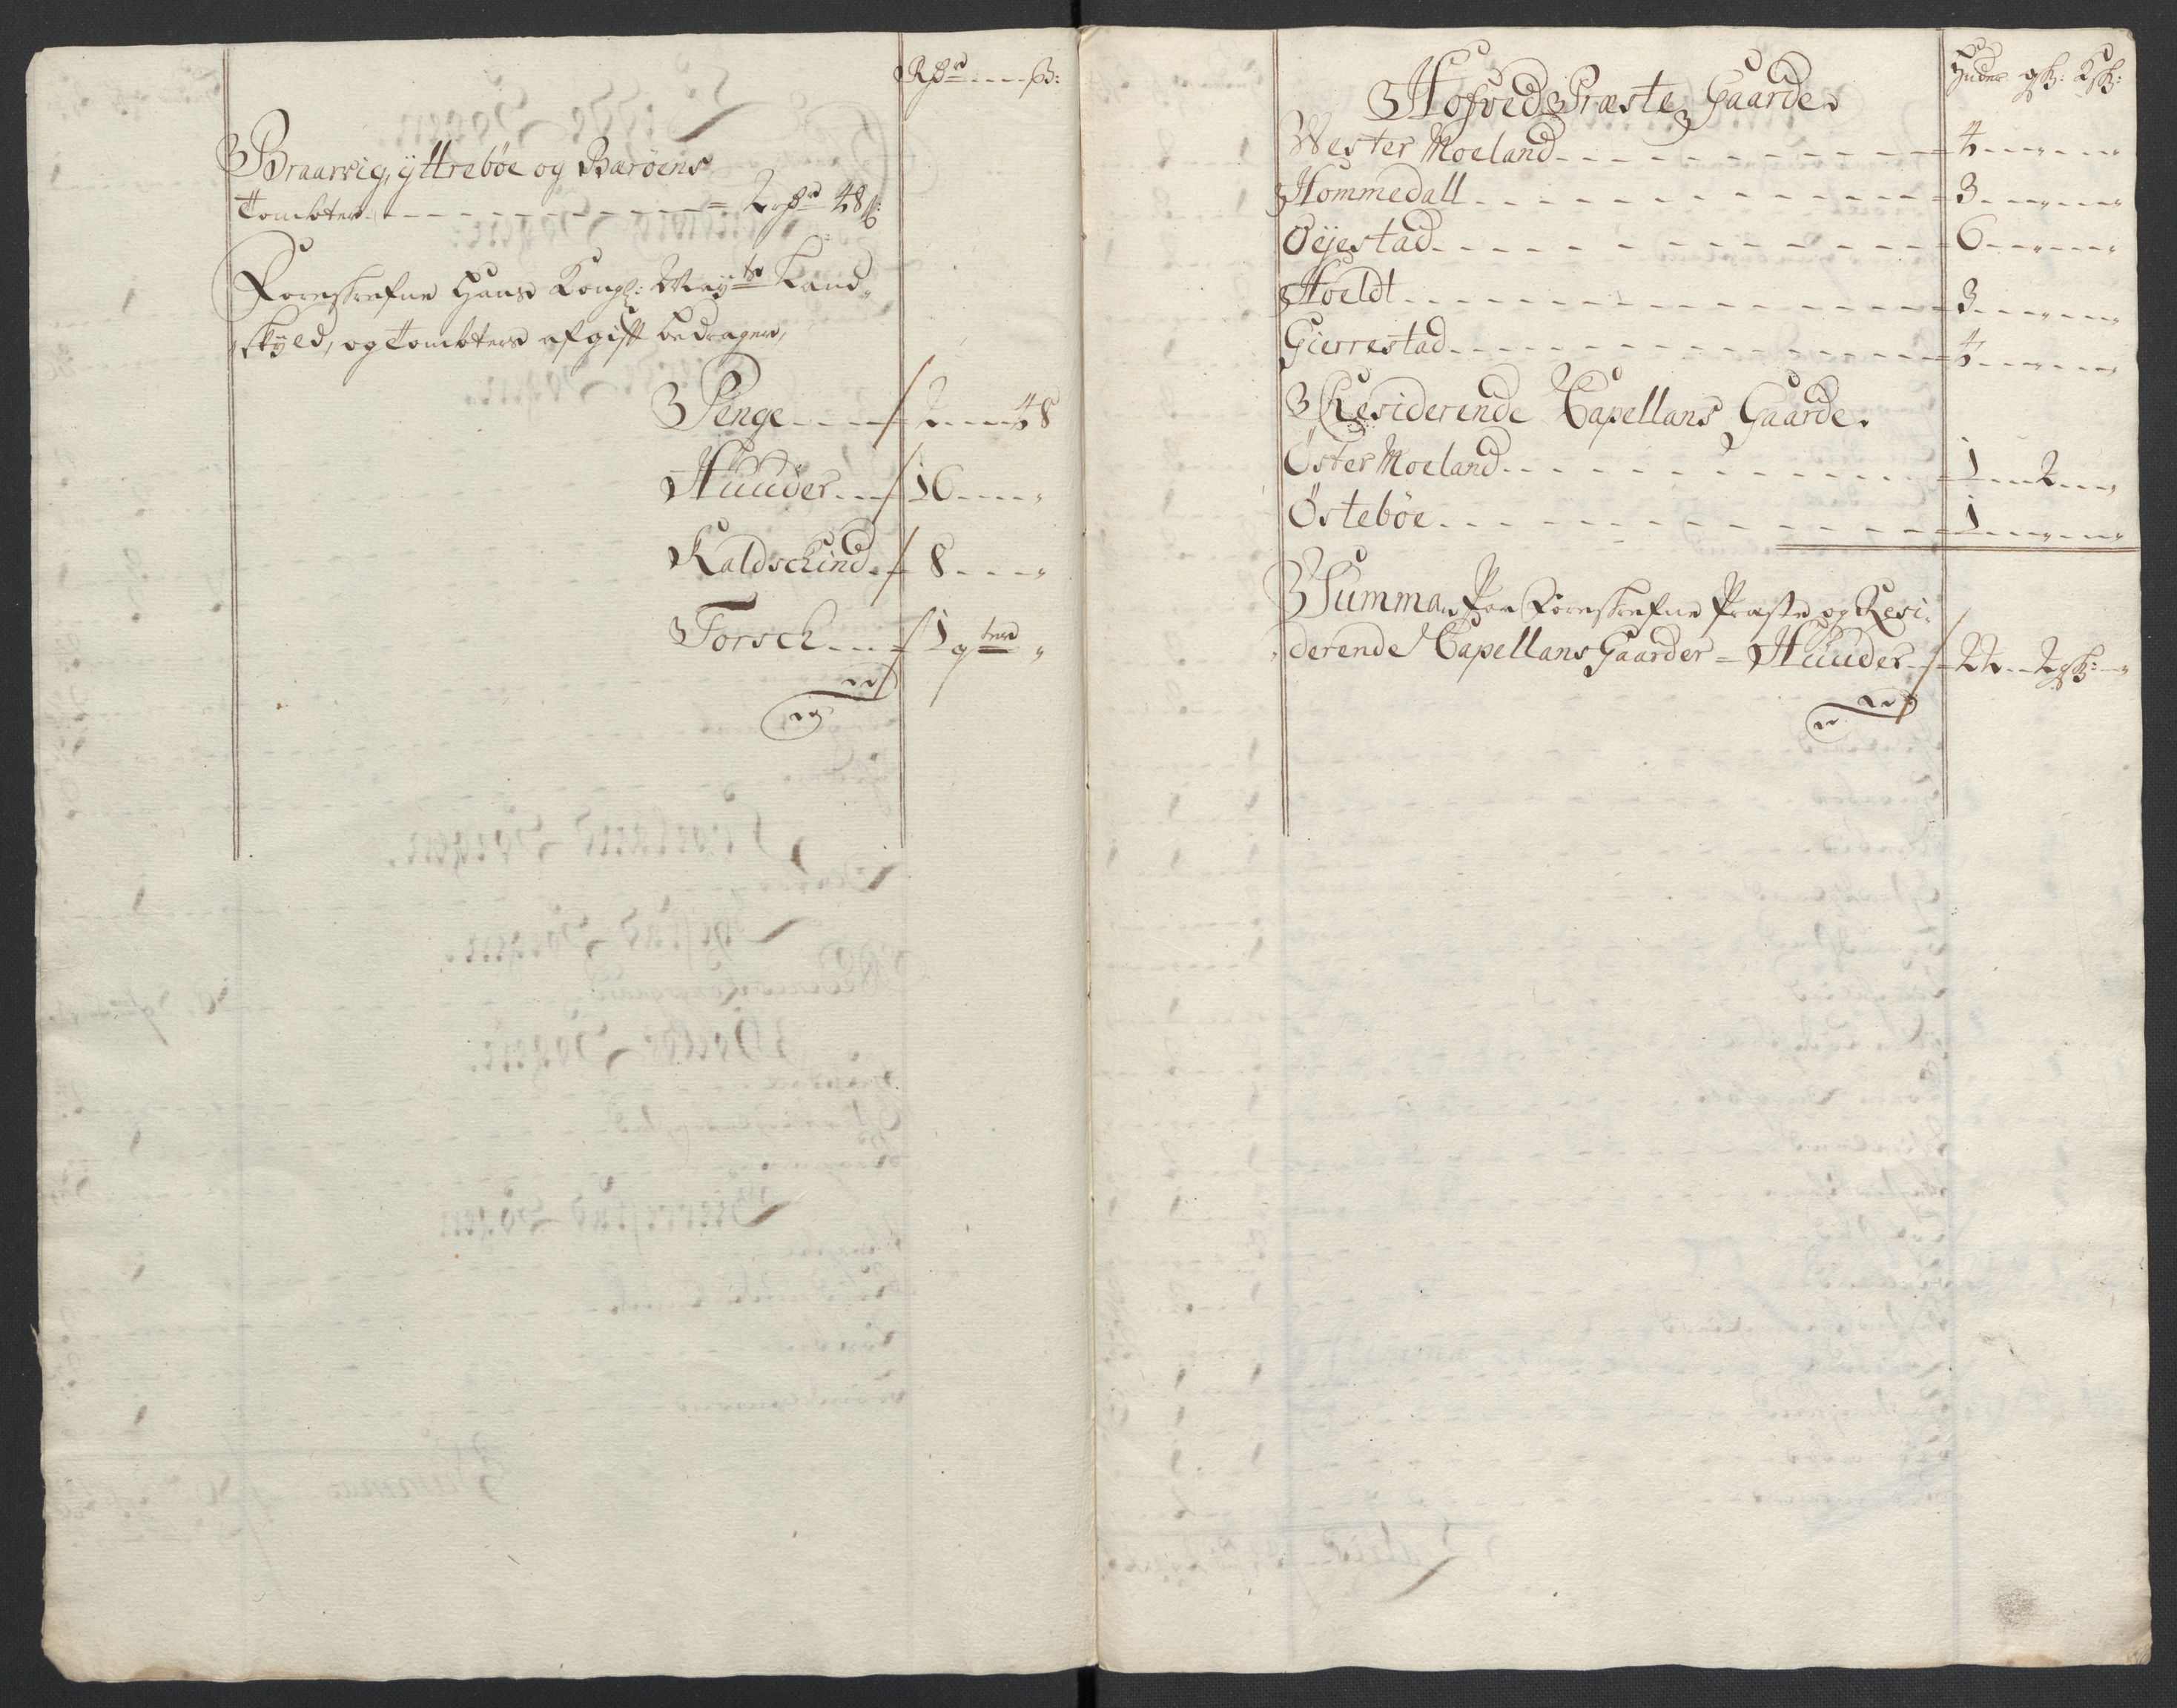 Rdr ß:
Braarvig, ÿttrebøe og Barøens
Tombter 2 rdr 48 ß:
Foreskrefne Hans Kongl: Mayts Land„
„skÿld, og Tombters afgift bedrager,
Penge 2 48
Huuder 16 „
Kaldschind 8 „
Torsch 1 qter „
Hofved Præste Gaarde.
Huder gsk: Ksk:
Wester Moeland 4 „ „
Hommedall 3 „ „
Öÿestad 6 „ „
Hoeldt 3 „ „
Gierrestad 4 „ „
Residerende Capellans Gaarde.
Öster Moeland 1 2 „
Östebøe 1 „ „
Summa, Paa Foreskrefne Præste og Resi„
„derende Capellans Gaarder = Huuder 22 2 gsk: „